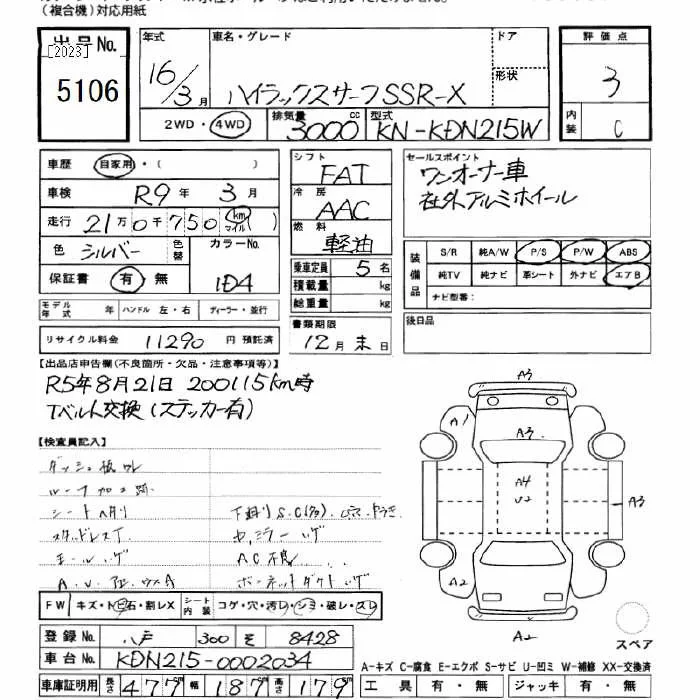 (複合機)対応用紙
出品No.
[2023]
5106
年式
16/3月
車名・グレード
ハイラックスサーフSSR-X
ドア
形状
2WD・4WD
排気量
3000cc
型式
KN-KDN215W
評価点
3
内装
C
車歴 自家用・( )
車検 R9年 3月
走行 21万0千750 km マイル
色 シルバー 色替
カラーNo.
1D4
保証書 有・無
モデル年式 年
ハンドル 左・右
ディーラー・並行
リサイクル料金 11290 円 預託済
シフト
FAT
冷房
AAC
燃料
軽油
乗車定員 5名
積載量 kg
総重量 kg
書類期限
12月末日
セールスポイント
ワンオーナー車
社外アルミホイール
装備品
S/R 純A/W P/S P/W ABS
純TV 純ナビ 革シート 外ナビ エアB
ナビ型番:
後日品
【出品店申告欄(不良箇所・欠品・注意事項等)】
R5年8月21日 200115km時
Tベルト交換(ステッカー有)
【検査員記入】
ルーフ加工跡
スタッドレスT
AC不良
ボーネットダクト
FW キズ・トビ石・割レX
シート内装 コゲ・穴・汚レ・シミ・破レ・スレ
登録No. 八戸 300 そ 8428
車台No. KDN215-0002034
車庫証明用 長さ 477cm 幅 187cm 高さ 179cm
A3
A1
A3
A4
U2
A3
A2
A2
スペア
A-キズ C-腐食 E-エクボ S-サビ U-凹ミ W-補修 XX-交換済
工具 有・無 ジャッキ 有・無